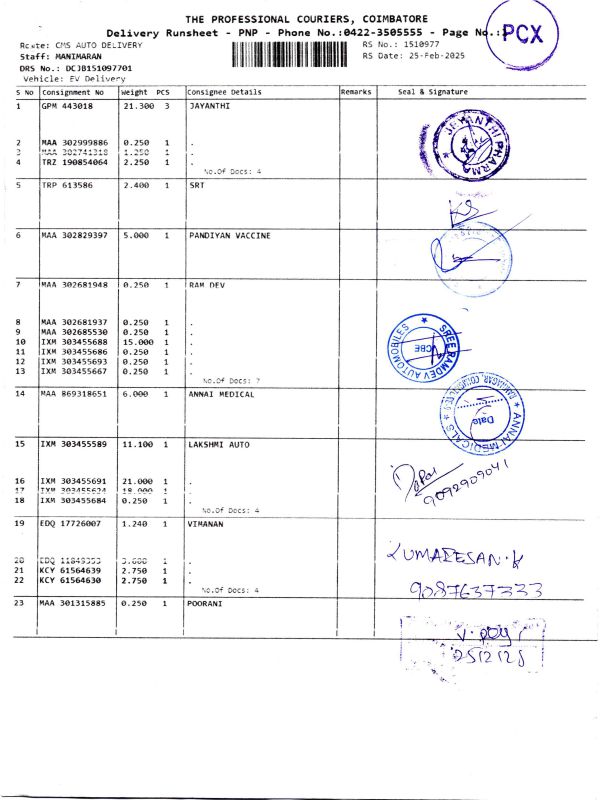 THE PROFESSIONAL COURIERS, COIMBATORE
Delivery Runsheet - PNP - Phone No.:0422-3505555 - Page No.:
PCX
Route: CMS AUTO DELIVERY
RS No.: 1510977
Staff: MANIMARAN
RS Date: 25-Feb-2025
DRS No.: DCJB151097701
Vehicle: EV Delivery
S No Consignment No Weight PCS Consignee Details Remarks Seal & Signature
1 GPM 443018 21.300 3 JAYANTHI
2 MAA 302999886 0.250 1 .
3 MAA 302741318 1.250 1 .
4 TRZ 190854064 2.250 1 .
No.Of Docs: 4
JEYANTHI PHARMA
5 TRP 613586 2.400 1 SRT
6 MAA 302829397 5.000 1 PANDIYAN VACCINE
7 MAA 302681948 0.250 1 RAM DEV
8 MAA 302681937 0.250 1 .
9 MAA 302685530 0.250 1 .
10 IXM 303455688 15.000 1 .
11 IXM 303455686 0.250 1 .
12 IXM 303455693 0.250 1 .
13 IXM 303455667 0.250 1 .
No.Of Docs: 7
SREE RAMDEV AUTOMOBILES
CBE
14 MAA 869318651 6.000 1 ANNAI MEDICAL
ANNAI MEDICALS
Date
15 IXM 303455589 11.100 1 LAKSHMI AUTO
16 IXM 303455691 21.000 1 .
17 IXM 303455624 18.000 1 .
18 IXM 303455684 0.250 1 .
No.Of Docs: 4
9092909041
19 EDQ 17726007 1.240 1 VIMANAN
20 EDQ 11849353 3.600 1 .
21 KCY 61564639 2.750 1 .
22 KCY 61564630 2.750 1 .
No.Of Docs: 4
KUMARESAN.K
9087637333
23 MAA 301315885 0.250 1 POORANI
25/2/25